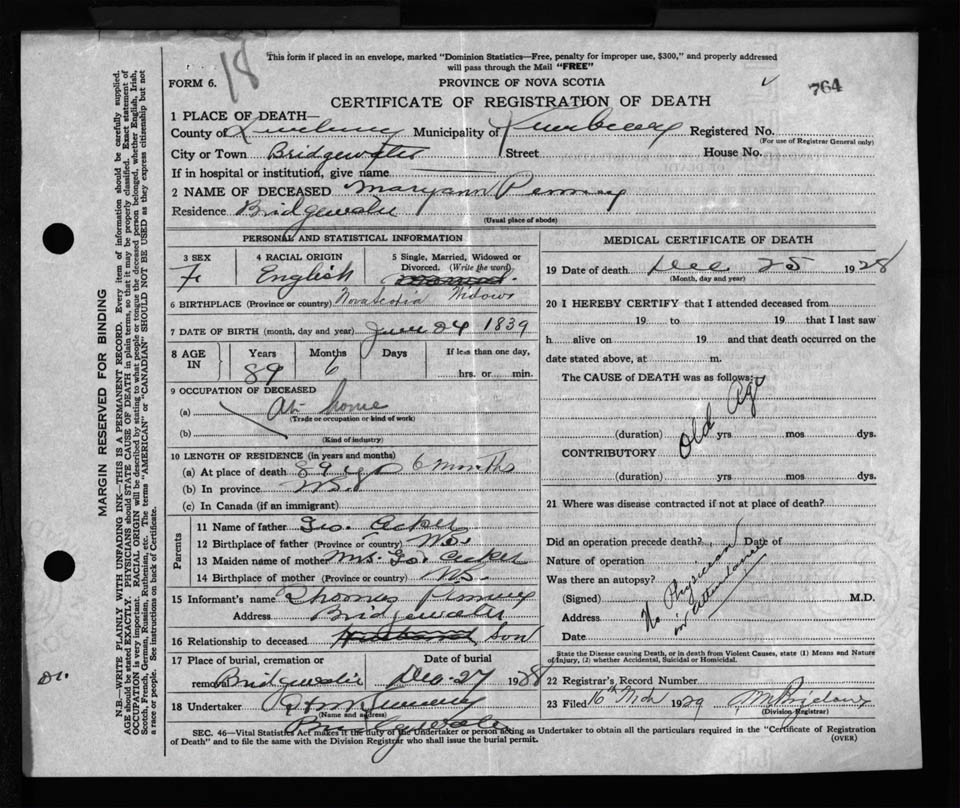 18
This form if placed in an envelope, marked "Dominion Statistics—Free, penalty for improper use, $300," and properly addressed
will pass through the Mail "FREE"
FORM 6.
PROVINCE OF NOVA SCOTIA
764
CERTIFICATE OF REGISTRATION OF DEATH
1 PLACE OF DEATH—
County of Lunenburg Municipality of Registered No.
(For use of Registrar General only)
City or Town Bridgewater Street House No.
If in hospital or institution, give name
2 NAME OF DECEASED Maryann Penney
Residence Bridgewater
(Usual place of abode)
PERSONAL AND STATISTICAL INFORMATION
3 SEX 4 RACIAL ORIGIN 5 Single, Married, Widowed or
Divorced. (Write the word)
F English
6 BIRTHPLACE (Province or country) Nova Scotia Widow
7 DATE OF BIRTH (month, day and year) June 24 1839
8 AGE IN Years Months Days If less than one day,
89 6 hrs. or min.
9 OCCUPATION OF DECEASED
(a) At home
(Trade or occupation or kind of work)
(b)
(Kind of industry)
10 LENGTH OF RESIDENCE (in years and months)
(a) At place of death 89 yrs 6 months
(b) In province N.S.
(c) In Canada (if an immigrant)
Parents
11 Name of father Geo. Acker
12 Birthplace of father (Province or country) N.S.
13 Maiden name of mother Mrs. Geo. Acker
14 Birthplace of mother (Province or country) N.S.
15 Informant's name Thomas Penney
Address Bridgewater
16 Relationship to deceased Husband Son
17 Place of burial, cremation or Date of burial
removal Bridgewater Dec. 27 1928
18 Undertaker
(Name and address)
Bridgewater
MEDICAL CERTIFICATE OF DEATH
19 Date of death Dec 25 1928
(Month, day and year)
20 I HEREBY CERTIFY that I attended deceased from
19 to 19 that I last saw
h alive on 19 and that death occurred on the
date stated above, at m.
The CAUSE of DEATH was as follows:
Old Age
(duration) yrs mos dys.
CONTRIBUTORY
(duration) yrs mos dys.
21 Where was disease contracted if not at place of death?
Did an operation precede death? Date of
Nature of operation
Was there an autopsy?
(Signed) M.D.
Address
Date
No Physician
in attendance
State the Disease causing Death, or in death from Violent Causes, state (1) Means and Nature
of Injury, (2) whether Accidental, Suicidal or Homicidal.
22 Registrar's Record Number
23 Filed 16th 1929
(Division Registrar)
SEC. 46—Vital Statistics Act makes it the duty of the Undertaker or person acting as Undertaker to obtain all the particulars required in the "Certificate of Registration
of Death" and to file the same with the Division Registrar who shall issue the burial permit.
(OVER)
MARGIN RESERVED FOR BINDING
N.B.—WRITE PLAINLY WITH UNFADING INK—THIS IS A PERMANENT RECORD. Every item of information should be carefully supplied.
AGE should be stated EXACTLY. PHYSICIANS should STATE CAUSE OF DEATH in plain terms, so that it may be properly classified. Exact statement of
OCCUPATION is very important. RACIAL ORIGIN will be described by stating to what people or tongue the deceased person belonged, whether English, Irish,
Scotch, French, German, Russian, Ruthenian, etc. The terms "AMERICAN" or "CANADIAN" SHOULD NOT BE USED as they express citizenship but not
a race or people. See instructions on back of Certificate.